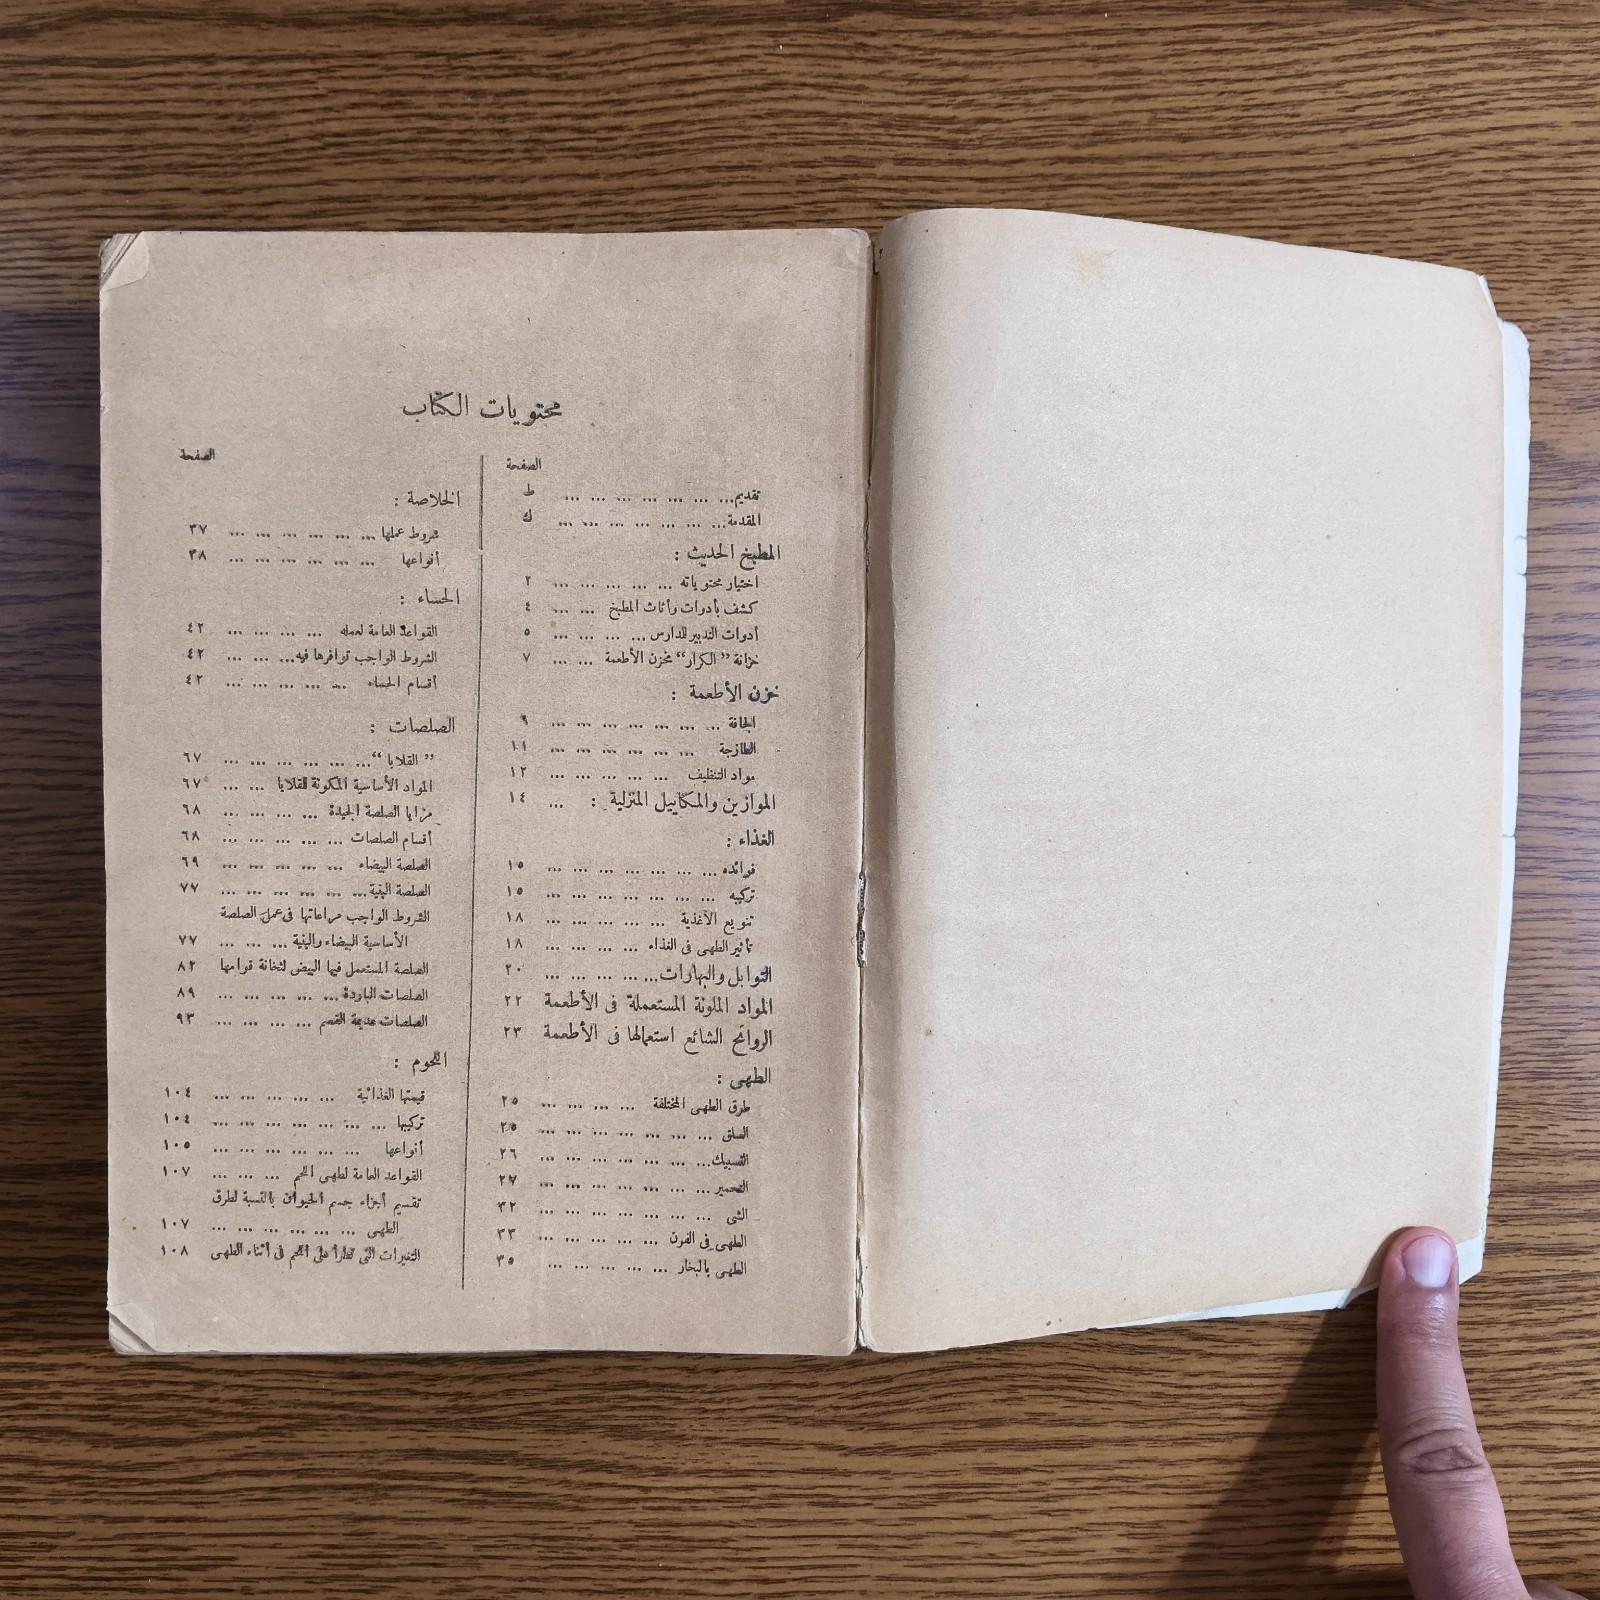 محتويات الكتاب
الصفحة
تقديم... ... ... ... ... ... ... ط
المقدمة... ... ... ... ... ... ... ك
المطبخ الحديث :
اختيار محتوياته ... ... ... ... ... ٢
كشف بأدوات وأثاث المطبخ ... ... ٤
أدوات التدبير للدارس ... ... ... ... ٥
خزانة ”الكرار“ مخزن الأطعمة ... ... ٧
خزن الأطعمة :
الجافة ... ... ... ... ... ... ... ٩
الطازجة ... ... ... ... ... ... ١١
مواد التنظيف ... ... ... ... ... ١٢
الموازين والمكاييل المنزلية : ... ١٤
الغذاء :
فوائده ... ... ... ... ... ... ... ١٥
تركيبه ... ... ... ... ... ... ... ١٥
تنويع الأغذية ... ... ... ... ... ١٨
تأثير الطهى فى الغذاء ... ... ... ... ١٨
التوابل والبهارات... ... ... ... ... ٢٠
المواد الملونة المستعملة فى الأطعمة ٢٢
الروائح الشائع استعمالها فى الأطعمة ٢٣
الطهى :
طرق الطهى المختلفة ... ... ... ... ٢٥
السلق ... ... ... ... ... ... ... ٢٥
التسبيك... ... ... ... ... ... ... ٢٦
التحمير ... ... ... ... ... ... ... ٢٧
الشى ... ... ... ... ... ... ... ٣٢
الطهى فى الفرن ... ... ... ... ... ... ٣٣
الطهى بالبخار ... ... ... ... ... ٣٥
الصفحة
الخلاصة :
شروط عملها ... ... ... ... ... ... ٣٧
أنواعها ... ... ... ... ... ... ٣٨
الحساء :
القواعد العامة لعمله ... ... ... ... ٤٢
الشروط الواجب توافرها فيه... ... ... ٤٢
أقسام الحساء ... ... ... ... ... ٤٢
الصلصات :
” القلايا “... ... ... ... ... ... ٦٧
المواد الأساسية المكونة للقلايا ... ... ٦٧
مزايا الصلصة الجيدة ... ... ... ... ٦٨
أقسام الصلصات ... ... ... ... ... ٦٨
الصلصة البيضاء ... ... ... ... ... ٦٩
الصلصة البنية ... ... ... ... ... ... ٧٧
الشروط الواجب مراعاتها فى عمل الصلصة
الأساسية البيضاء والبنية ... ... ... ٧٧
الصلصة المستعمل فيها البيض لثخانة قوامها ٨٢
الصلصات الباردة ... ... ... ... ... ٨٩
الصلصات عديمة القسم ... ... ... ... ٩٣
اللحوم :
قيمتها الغذائية ... ... ... ... ... ١٠٤
تركيبها ... ... ... ... ... ... ... ١٠٤
أنواعها ... ... ... ... ... ... ١٠٥
القواعد العامة لطهى اللحم ... ... ... ١٠٧
تقسيم أجزاء جسم الحيوان بالنسبة لطرق
الطهى ... ... ... ... ... ... ١٠٧
التغيرات التى تطرأ على اللحم فى أثناء الطهى ١٠٨